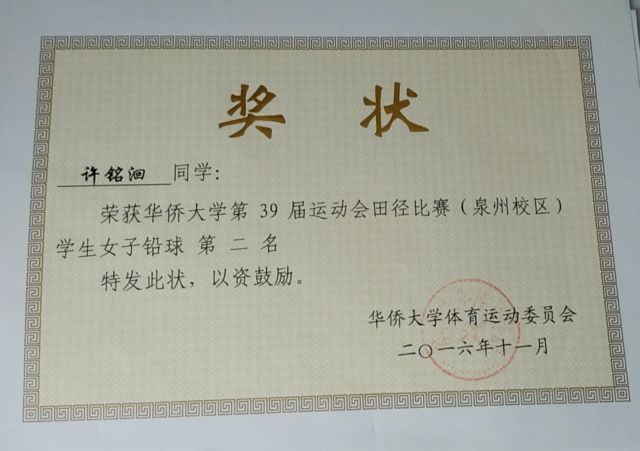 奖状
许铭洄 同学：
荣获华侨大学第 39 届运动会田径比赛（泉州校区）
学生女子铅球 第 二 名
特发此状，以资鼓励。
华侨大学体育运动委员会
二〇一六年十一月